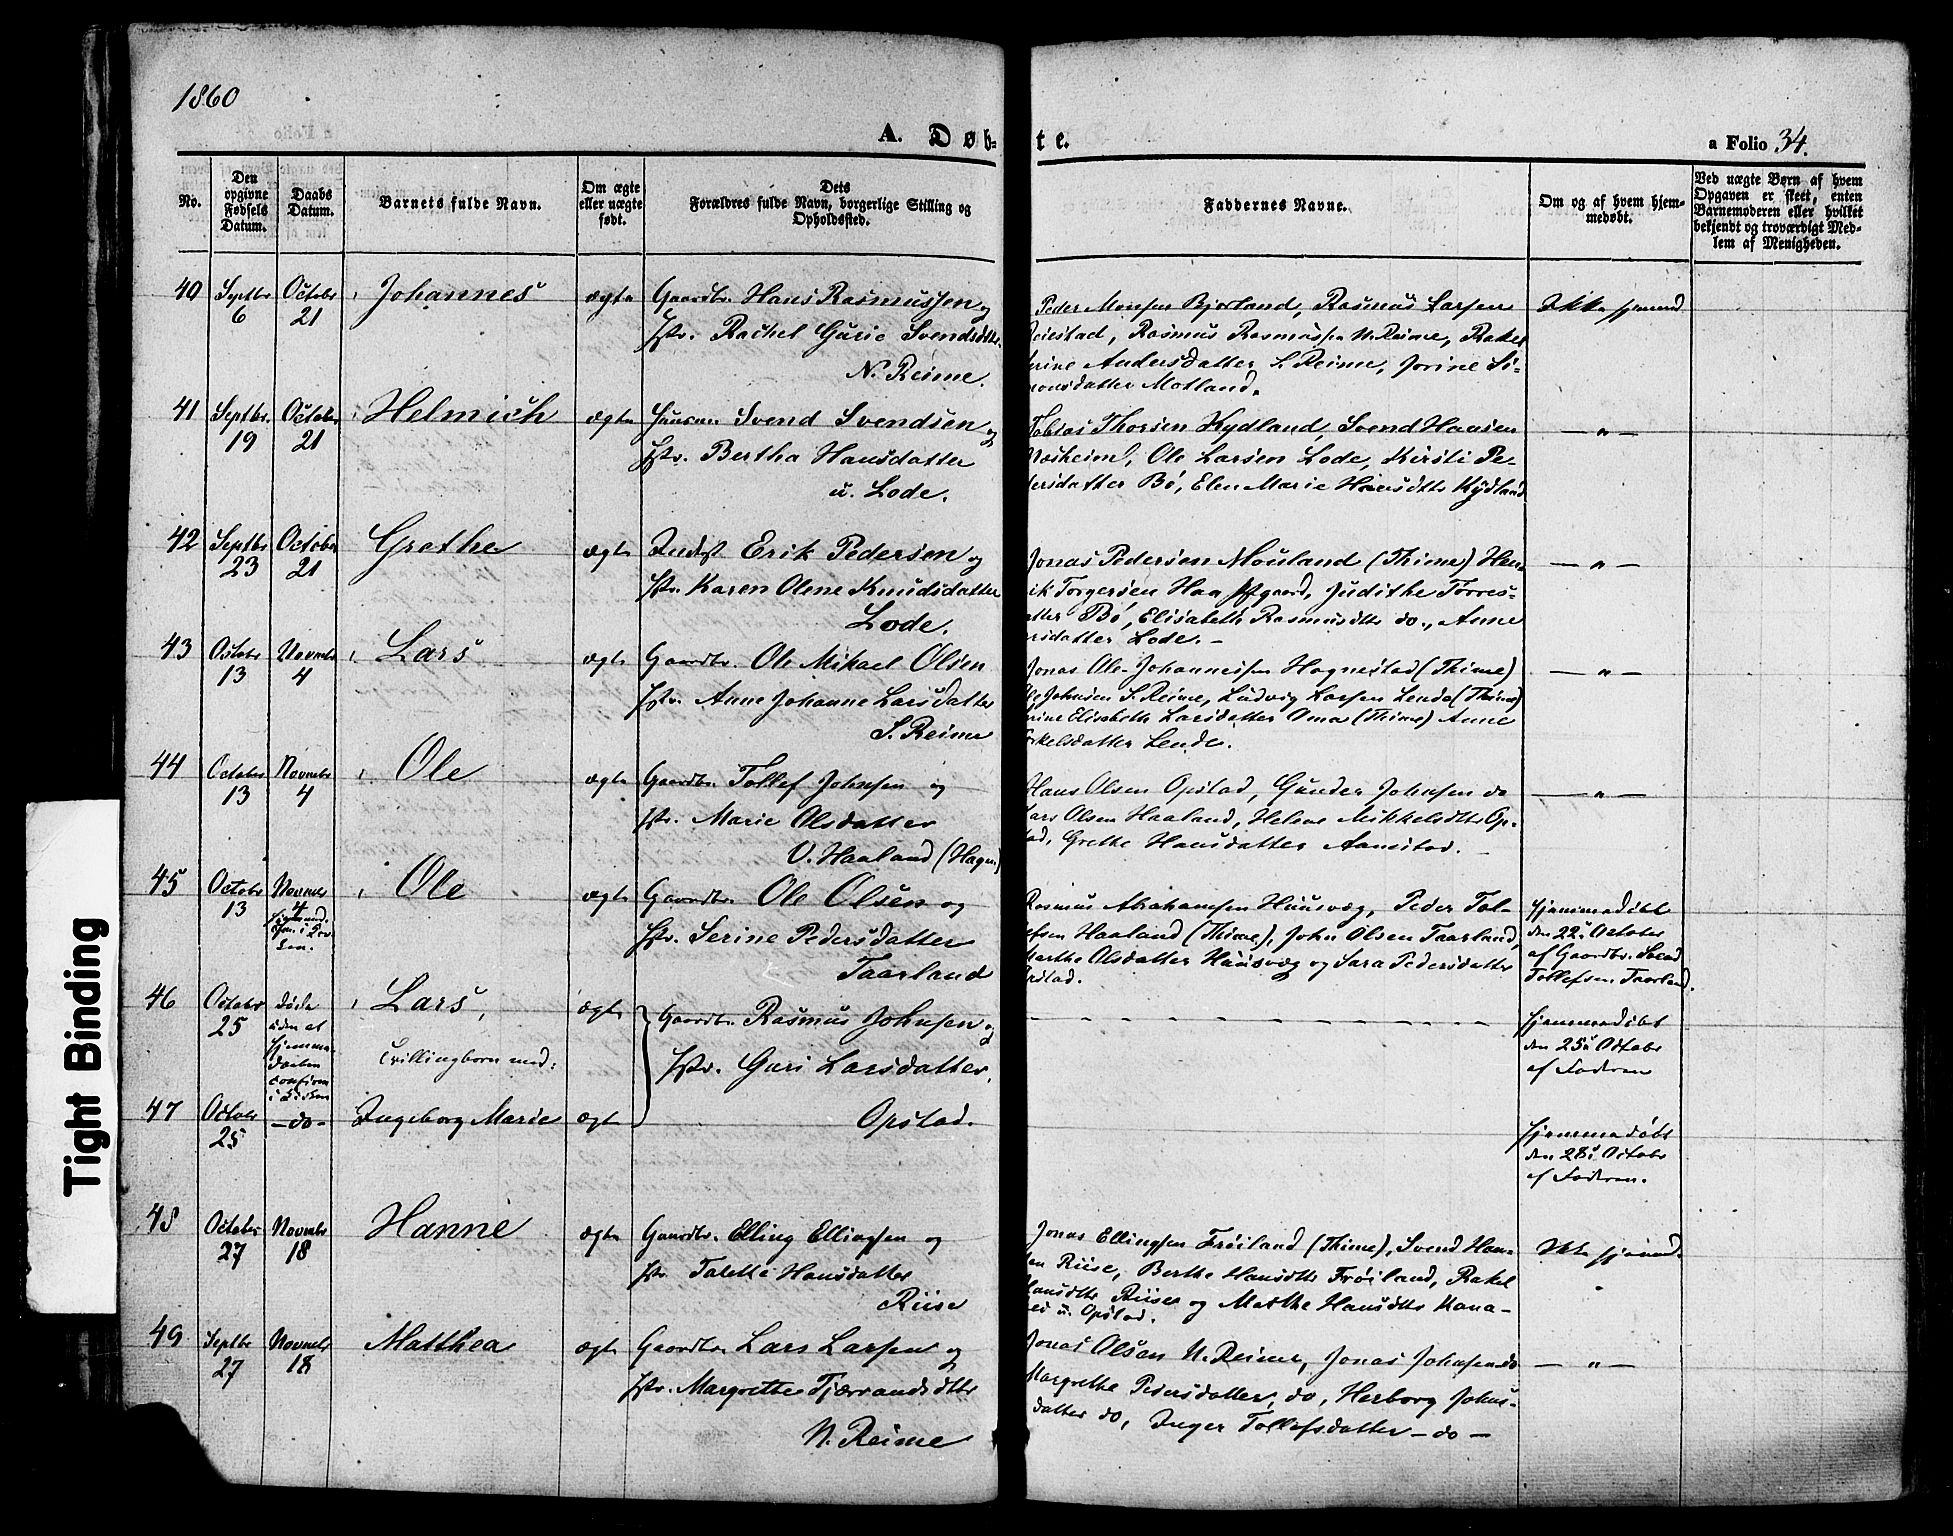 1860
A. Døb-
te.
a Folio 34.
No.
Den opgivne Fødsels Datum.
Daabs Datum.
Barnets fulde Navn.
Om ægte eller uægte født.
Dets Forældres fulde Navn, borgerlige Stilling og Opholdssted.
Faddernes Navne.
Om og af hvem hjemmedøbt.
Ved uægte Børn af hvem Opgaven er skeet, enten Barnemoderen eller hvilket bekjendt og troværdigt Medlem af Menigheden.
40 Septbr 6 October 21 Johannes ægte Gaardbr. Hans Rasmussen og
Hstr. Rachel Gurie Svendsdttr.
N. Reime.
Peder Monsen Bjorland, Rasmus Larsen
Rasmus Rasmussen N. Reime, Rakel
Andersdatter S. Reime, Jorine Si-
monsdatter Motland.
Ikke hjemmed
41 Septbr. 19 October 21 Helmich ægte Huusm. Svend Svendsen og
Hstr. Bertha Hansdatter
u. Lode.
Tobias Thorsen Kydland, Svend Hansen
Næsheim, Ole Larsen Lode, Kirsti Pe-
dersdatter Bø, Elen Marie Hansdttr Kydland
— „ —
42 Septbr 23 October 21 Grethe ægte Inderst Erik Pedersen og
Hstr. Karen Olene Knudsdatter
Lode.
Jonas Pedersen Mosland (Thime) Hen-
rik Torgersen Haa Pstgaard, Judithe Torres-
datter Bø, Elisabeth Rasmusdttr do., Anne
Lode. —
— „ —
43 October 13 Novmbr 4 Lars ægte Gaardbr. Ole Mikael Olsen
Hstr. Anne Johanne Larsdatter
S. Reime
Jonas Ole Johannessen Hognestad (Thime)
Ole Johnsen S. Reime, Ludvig Larsen Lende (Thime)
Elisabeth Larsdatter Oma (Thime) Anne
Lende.
— „ —
44 October 13 Novmbr 4 Ole ægte Gaardbr. Tollef Johnsen og
Hstr. Marie Olsdatter
V. Haaland (Hagen)
Hans Olsen Opstad, Gunder Johnsen do
Lars Olsen Haaland, Helene Mikkelsdttr Op-
stad, Grethe Hansdatter Aanestad.
— „ —
45 October 13 Novmbr 4 Ole ægte Gaardbr. Ole Olsen og
Hstr. Serine Pedersdatter
Taarland
Rasmus Abrahamsen Huusvæg, Peder Tol-
lefsen Haaland (Thime), John Olsen Taarland,
Marthe Olsdatter Huusvæg og Sara Pedersdatter
Opstad.
Hjemmedøbt
den 22de October
af Gaardbr. Svend
Tollefsen Taarland.
46 October 25 døde uden at Hjemmedaaben confirm. i Kirken Lars, ægte Gaardbr. Rasmus Johnsen og
Tvillingborn med: Hstr. Guri Larsdatter,
Hjemmedøbt
den 25de October
af Faderen
47 October 25 — do — Ingeborg Marie ægte Opstad.
Hjemmedøbt
den 28de October
af Faderen.
48 October 27 Novmbr 18 Hanne ægte Gaardbr. Elling Ellingsen og
Hstr. Talette Hansdatter
Riise
Jonas Ellingsen Frøiland (Thime), Svend Han-
sen Riise, Berthe Hansdttr Frøiland, Rakel
Hansdttr Riise og Marthe Hansdttr Kana-
u. Opstad.
Ikke hjemmd.
49 Septbr 27 Novmbr 18 Matthea ægte Gaardbr. Lars Larsen og
Hstr. Margrethe Tjærandsdttr
N. Reime
Jonas Olsen N. Reime, Jonas Johnsen do
Margrethe Pedersdatter, do, Herborg Johns-
datter do, Inger Tollefsdatter — do —
— „ —
Tight Binding